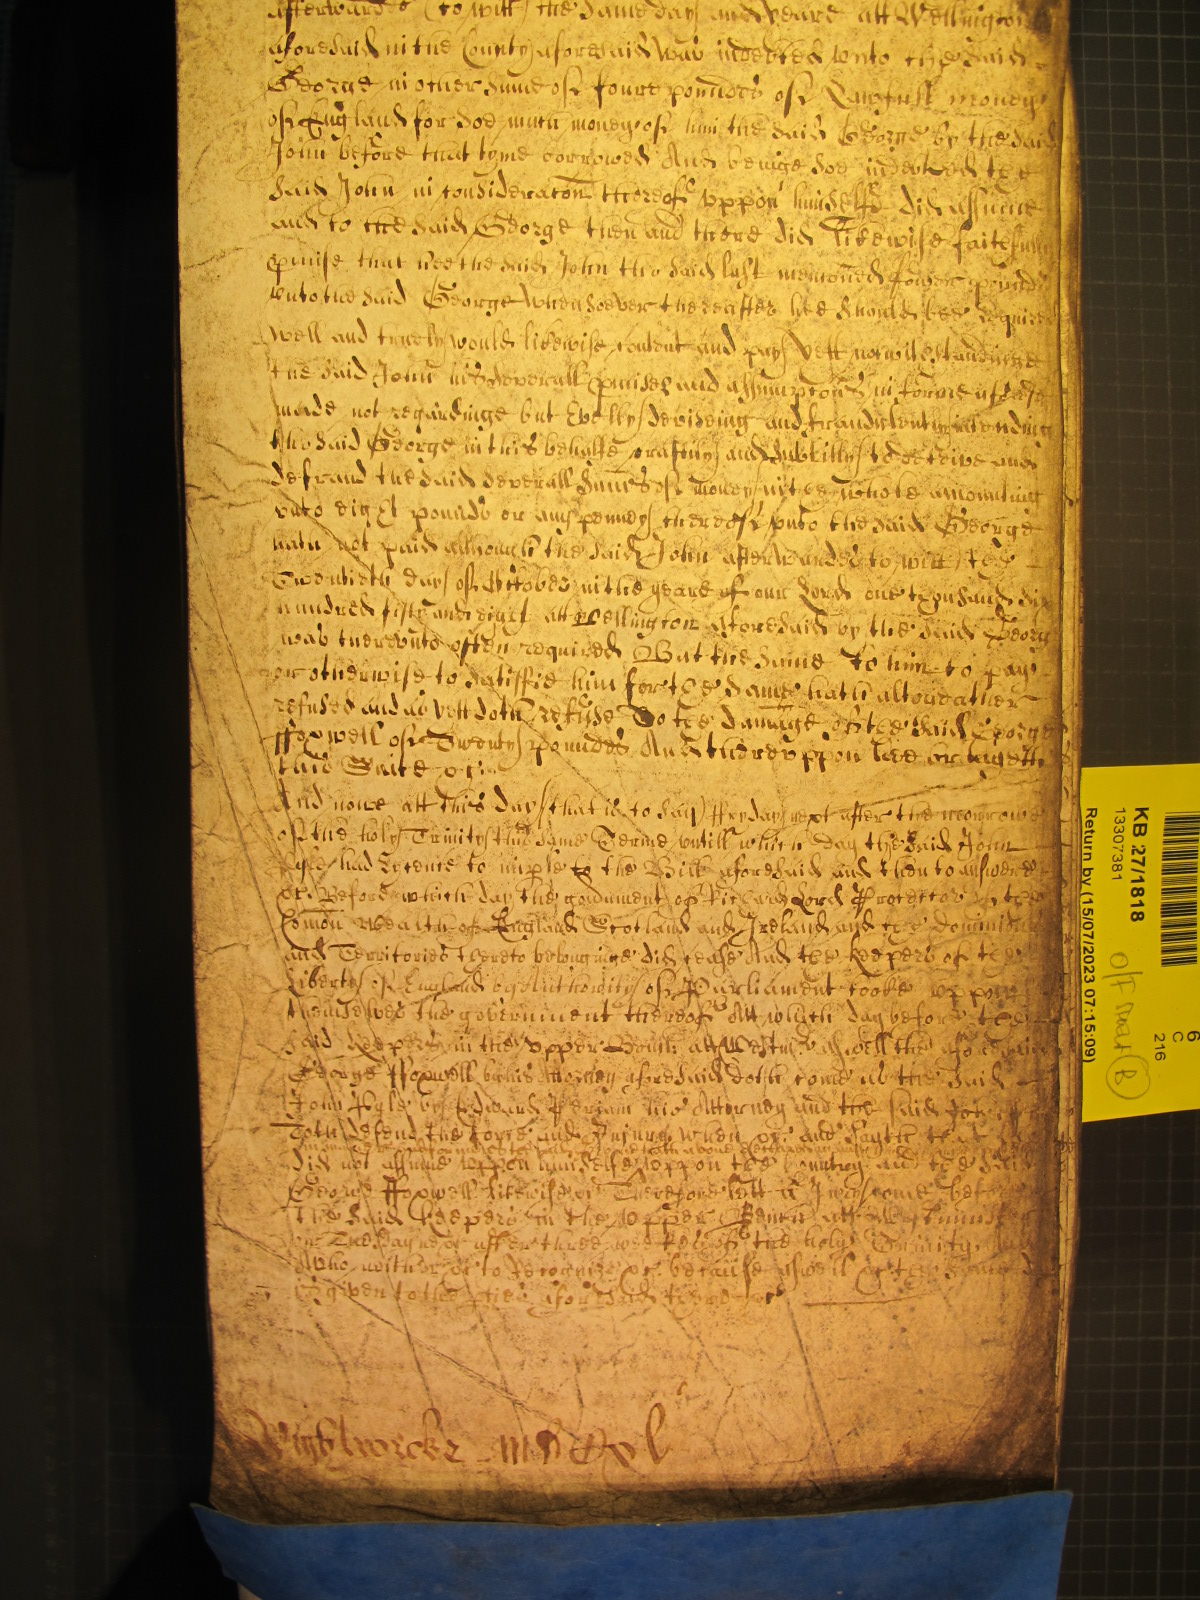 afterwards (to witt) the same day and yeare att Wellington
aforesaid in the County aforesaid was indebted unto the said
George in other sume of foure poundes of Lawfull money
of England for soe much money of him the said George by the said
John before that tyme borrowed And beinge soe indebted the
said John in consideracon thereof uppon himselfe did assume
and to the said George then and there did likewise faithfully
pmise that hee the said John the said last mencioned fower pounds
unto the said George whensoever thereafter hee should bee required
well and truely would likewise content and pay yett notwithstandinge
the said John his severall pmises and assumpcons in forme aforesaid
made not regardinge but Evilly deviseing and fraudulently intending
the said George in this behalfe craftily and subtilly to deceive and
defraud the said severall sumes of money in the whole amounting
unto eight pounds or any penney thereof unto the said George
hath not paid although the said John afterwardes to witt the
Twentieth day of October in the yeare of our Lord one thousand six
hundred fifty and eight att Wellington aforesaid by the said George
was thereunto often required But the same to him to pay
or otherwise to satisfie him for the same hath altogeather
refused and as yett doth refuse To the damage of the said George
ffoxwell of Twenty poundes And thereuppon hee bringeth
this Suite &c
And nowe att this day (that is to say) ffryday next after the morrowe
of the holy Trinity this same Terme untill which day the said John
had Licence to imple to the Bill aforesaid and then to answere
&c Before which day the goverment of Richard Lord Protector of the
Comon Wealth of England Scotland and Ireland and the dominions
and Territories thereto belonginge did cease And the keepers of the
Liberty of England by Authority of Parliament tooke uppon
themselves the government thereof Att which day before the
said keepers in the upper Bench att Westmr aswell the aforesaid
George ffoxwell by his Attorney aforesaid doth come as the said
John by Edward Periam his Attorney and the said John
doth defend the force and Injury when &c and sayth that
did not assume uppon himselfe uppon the Country and the said
George ffoxwell likewise &c Therefore lett a Jury come before
the said keepers in the upper Bench att Westminster
on Tuesday next after three weekes of the holy Trinity And
who neither &c to Recognize &c because aswell &c the same day
is given to the pties aforesaid there &c
Wightwicke MDCxl
KB 27/1818
13307381
Return by (15/07/2023 07:15:09)
6
C
216